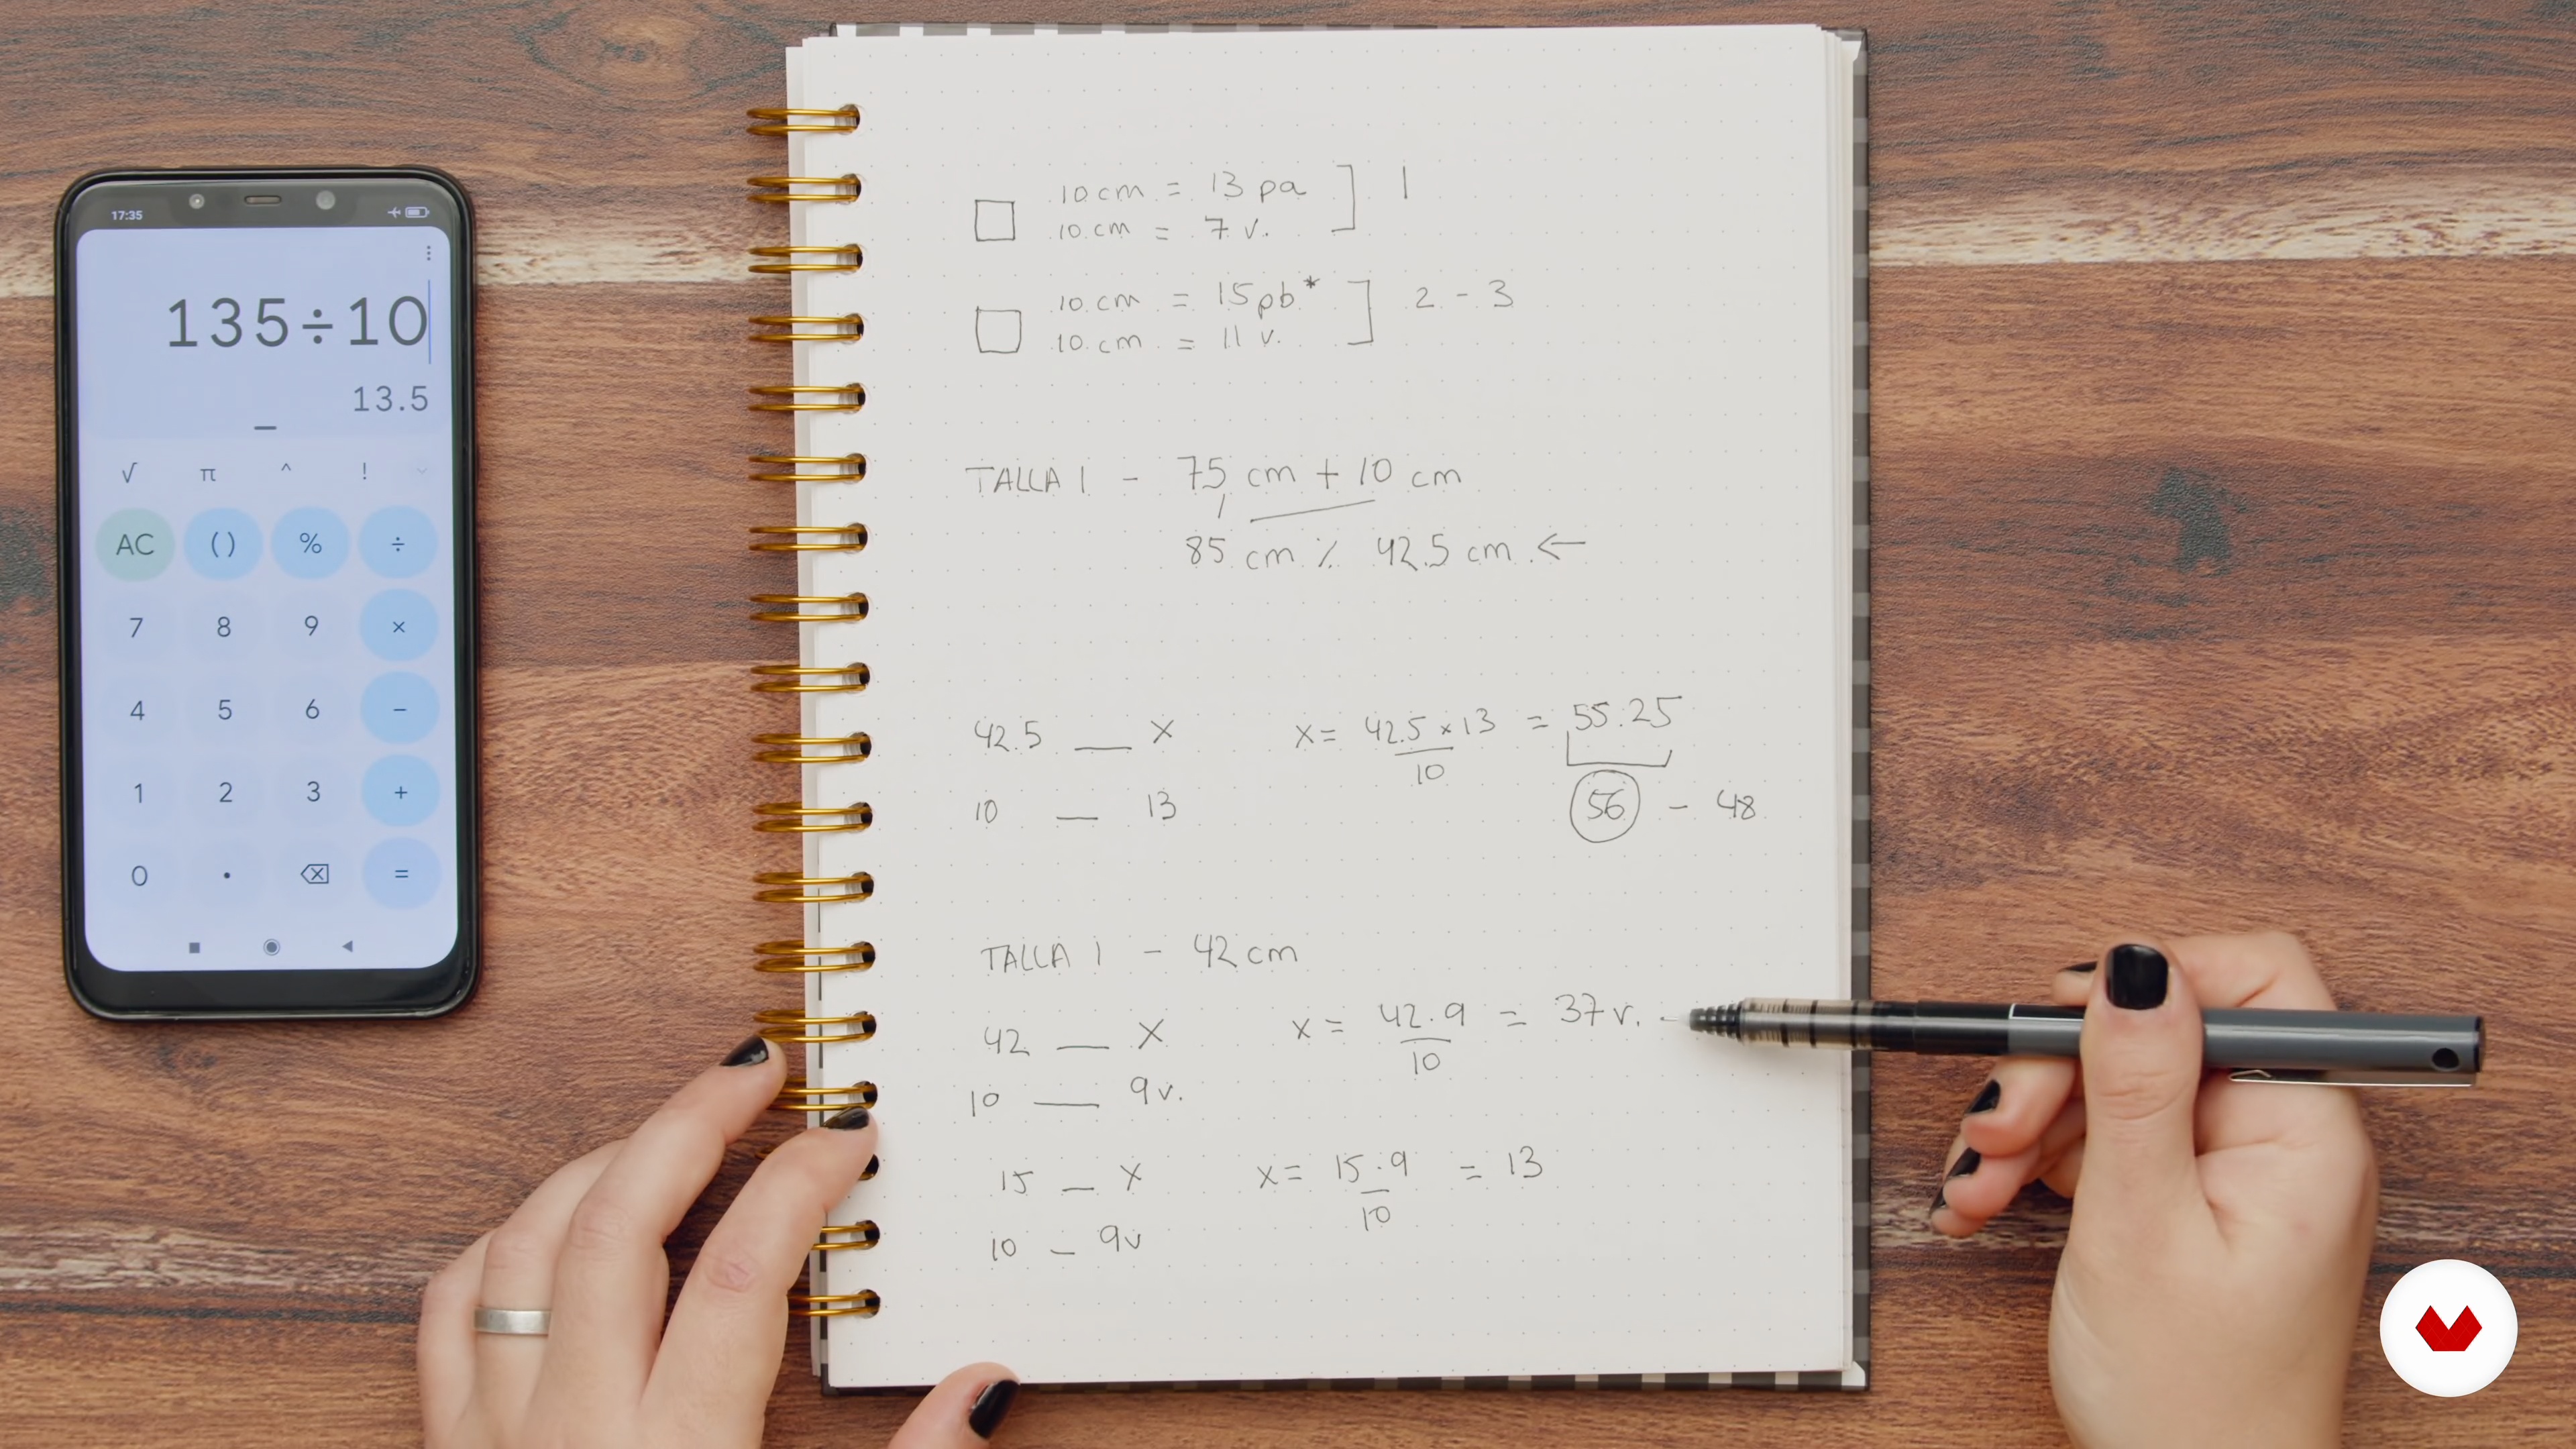 17:35
135÷10
13.5
√ π ^ !
AC ( ) % ÷
7 8 9 ×
4 5 6 −
1 2 3 +
0 . =
10 cm = 13 pa ] 1
10 cm = 7 v.
10 cm = 15 pb* ] 2 - 3
10 cm = 11 v.
TALLA 1 - 75 cm + 10 cm
85 cm ٪ 42.5 cm ←
42.5 __ x x = 42.5 x 13 = 55.25
10
10 __ 13 56 - 48
TALLA 1 - 42 cm
42 __ X x = 42.9 = 37 v.
10
10 __ 9v.
15 _ x x = 15.9 = 13
10
10 _ 9v